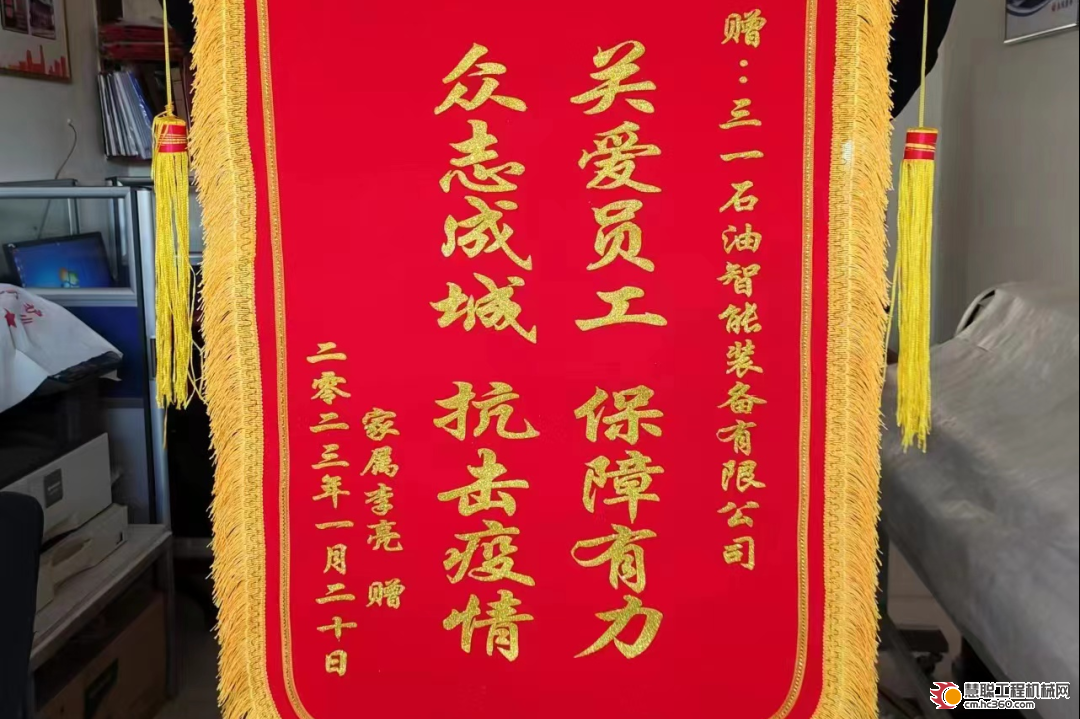 赠：三一石油智能装备有限公司
关爱员工 保障有力
众志成城 抗击疫情
家属李亮 赠
二零二三年一月二十日
慧聪工程机械网
cm.hc360.com